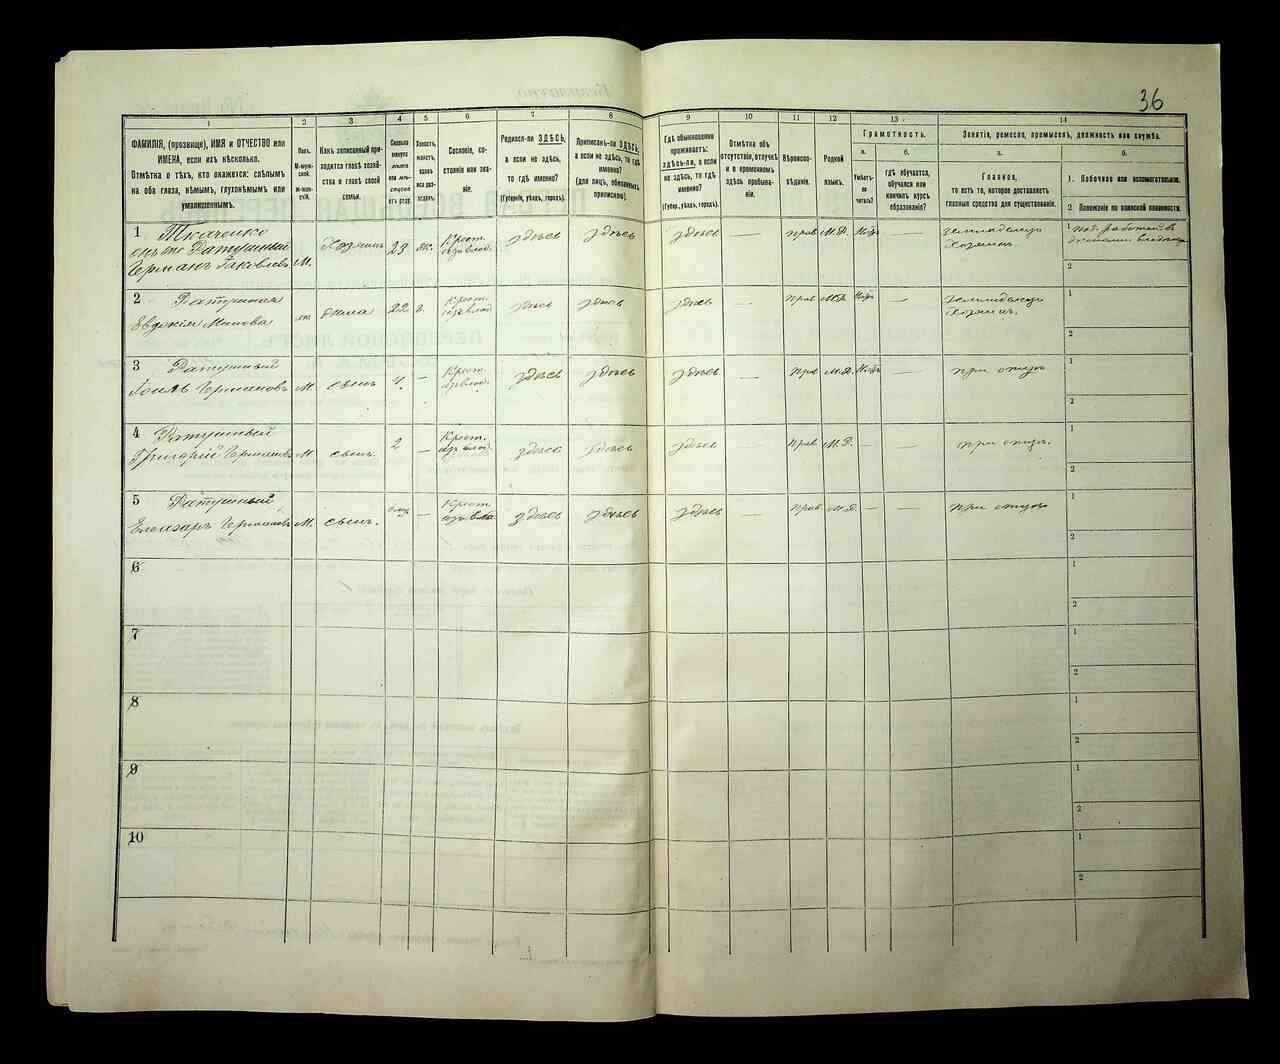 36
1
2
3
4
5
6
7
8
9
10
11
12
13
14
ФАМИЛІЯ, (прозвище), ИМЯ и ОТЧЕСТВО или
ИМЕНА, если ихъ нѣсколько.
Отмѣтка о тѣхъ, кто окажется: слѣпымъ
на оба глаза, нѣмымъ, глухонѣмымъ или
умалишеннымъ.
Полъ.
М-мужской.
Ж-женскій.
Какъ записанный при-
ходится главѣ хозяй-
ства и главѣ своей
семьи.
Сколько
минуло
лѣтъ
или мѣ-
сяцевъ
отъ роду.
Холостъ,
женатъ,
вдовъ
или раз-
веденъ.
Сословіе, со-
стояніе или зва-
ніе.
Родился-ли ЗДѢСЬ,
а если не здѣсь,
то гдѣ именно?
(Губернія, уѣздъ, городъ).
Приписанъ-ли ЗДѢСЬ,
а если не здѣсь, то гдѣ
именно?
(для лицъ, обязанныхъ
припискою).
Гдѣ обыкновенно
проживаетъ:
здѣсь-ли, а если
не здѣсь, то гдѣ
именно?
(Губер., уѣздъ, городъ).
Отмѣтка объ
отсутствіи, отлучкѣ
и о временномъ
здѣсь пребыва-
ніи.
Вѣроиспо-
вѣданіе.
Родной
языкъ.
Грамотность.
а.
б.
Умѣетъ-
ли
читать?
гдѣ обучается,
обучался или
кончилъ курсъ
образованія?
Занятіе, ремесло, промыселъ, должность или служба.
а.
б.
Главное,
то есть то, которое доставляетъ
главныя средства для существованія.
1. Побочное или вспомогательное.
2 Положеніе по воинской повинности.
1 Ткаченко
онъ же Ратушный
Германъ Яковлевъ М. Хозяинъ 23 ж. Крест. здѣсь здѣсь здѣсь — прав М.Р. — земледѣлецъ
Хозяинъ.
1
2
2 Ратушная
Евдокія жена 22 з. Крест. здѣсь здѣсь здѣсь — прав М.Р. — земледѣлецъ
1
2
3 Ратушный
Германовъ М. сынъ 4. — Крест. здѣсь здѣсь здѣсь — прав М.Р. — при отцѣ
1
2
4 Ратушный
Григорій Германовъ М. сынъ. 2 — Крест. здѣсь здѣсь здѣсь — прав М.Р. — — при отцѣ.
1
2
5 Ратушный
Елеазаръ Германовъ М. сынъ. — Крест. здѣсь здѣсь здѣсь — прав. М.Р. — — при отцѣ
1
2
6
1
2
7
1
2
8
1
2
9
1
2
10
1
2